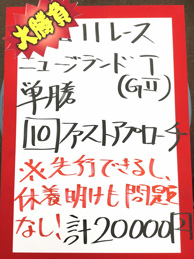 大勝負
11レース
ニュージランドT
(GⅡ)
単勝
10 ファストアプローチ
※先行できるし、
休養明けも問題
なし!計20000円